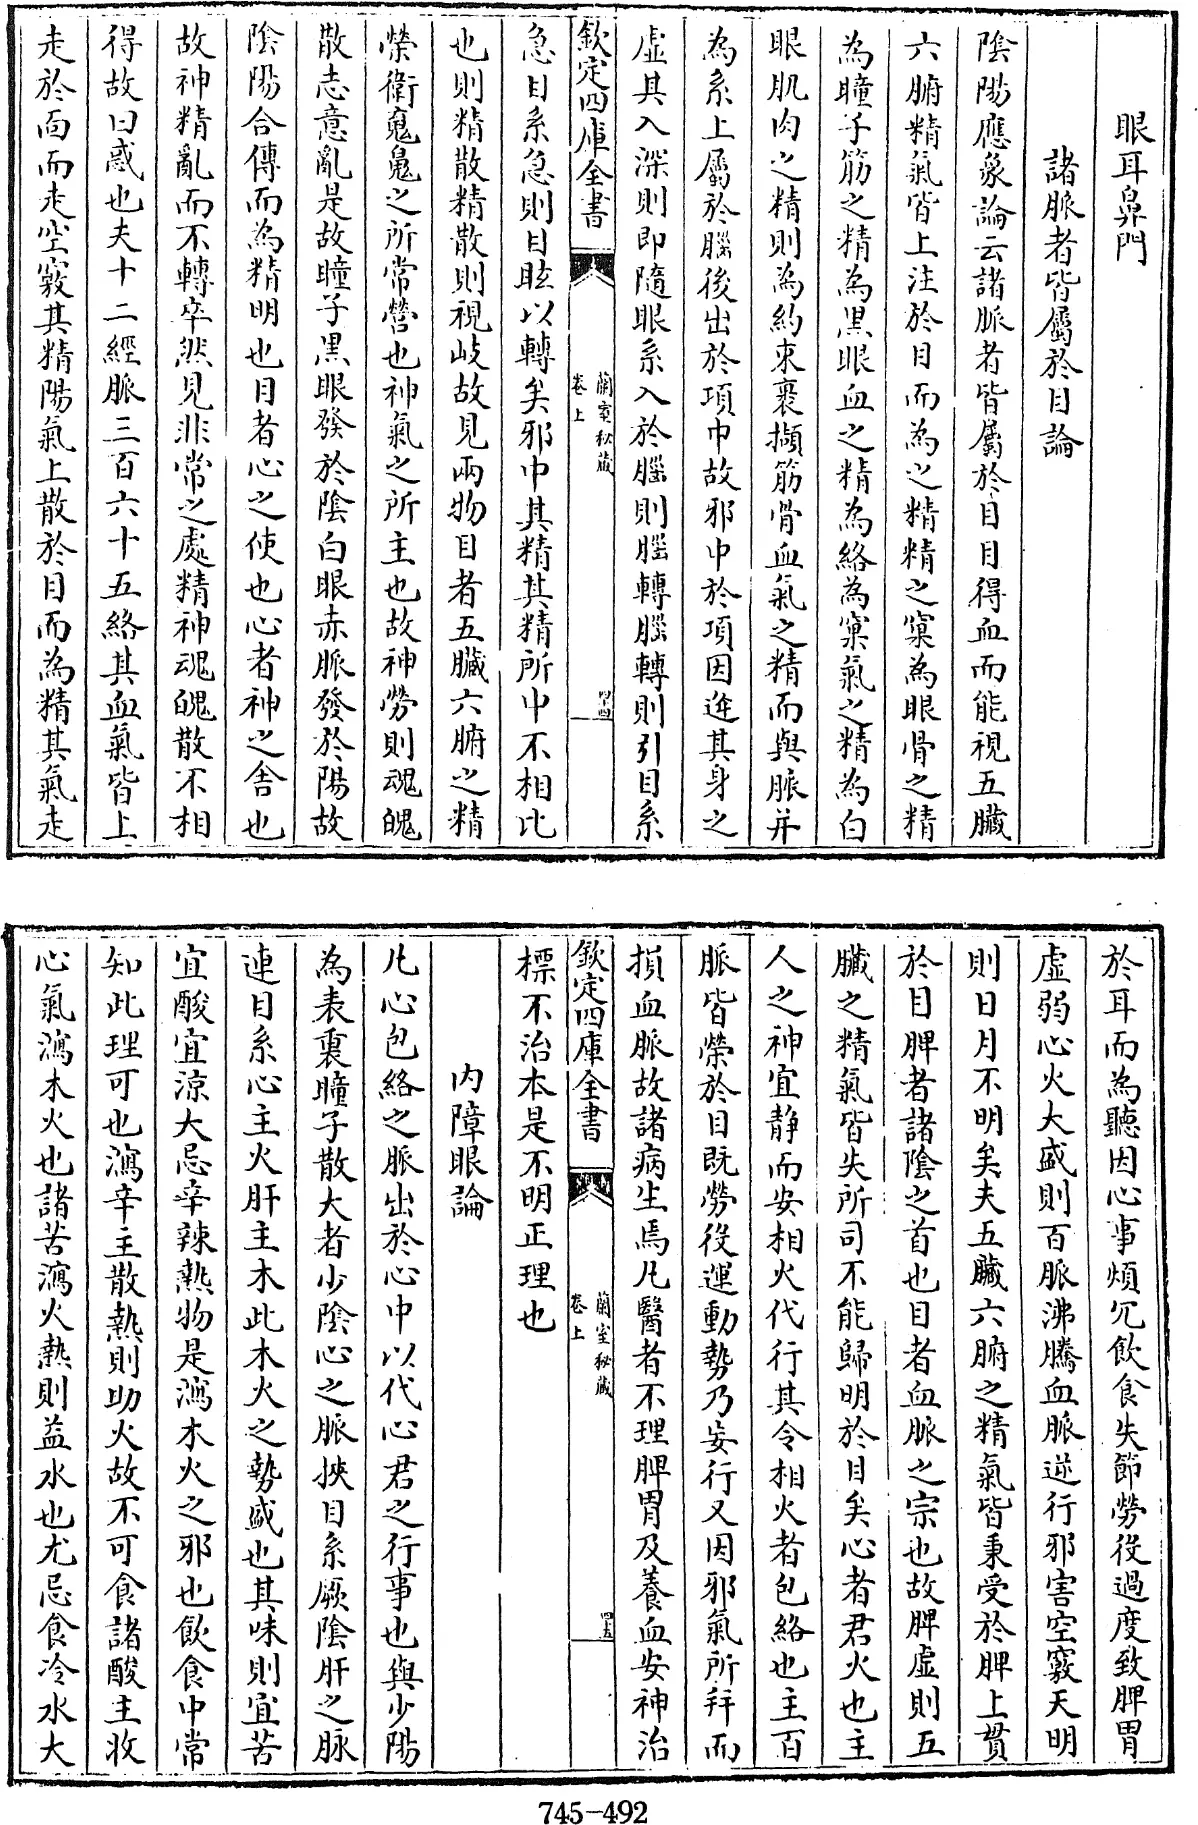 眼耳鼻門
諸脈者皆屬於目論
陰陽應象論云諸脈者皆屬於目目得血而能視五臟
六腑精氣皆上注於目而為之精精之窠為眼骨之精
為瞳子筋之精為黒眼血之精為絡為窠氣之精為白
眼肌肉之精則為約束裹擷筋骨血氣之精而與脈并
為系上屬於腦後出於項中故邪中於項因逄其身之
虛其入深則即隨眼系入於腦則腦轉腦轉則引目系
欽定四庫全書
蘭室秘藏
卷上
四十四
急目系急則目眩以轉矣邪中其精其精所中不相比
也則精散精散則視岐故見兩物目者五臟六腑之精
榮衛䰟魄之所常營也神氣之所主也故神勞則魂魄
散志意亂是故瞳子黒眼發於陰白眼赤脈發於陽故
陰陽合傳而為精明也目者心之使也心者神之舍也
故神精亂而不轉卒然見非常之處精神魂魄散不相
得故曰惑也夫十二經脈三百六十五絡其血氣皆上
走於面而走空竅其精陽氣上散於目而為精其氣走
於耳而為聽因心事煩冗飲食失節勞役過度致脾胃
虛弱心火大盛則百脈沸騰血脈逆行邪害空竅天明
則日月不明矣夫五臟六腑之精氣皆秉受於脾上貫
於目脾者諸陰之首也目者血脈之宗也故脾虛則五
臟之精氣皆失所司不能歸明於目矣心者君火也主
人之神宜静而安相火代行其令相火者包絡也主百
脈皆榮於目既勞役運動勢乃妄行又因邪氣所并而
損血脈故諸病生焉凡醫者不理脾胃及養血安神治
欽定四庫全書
蘭室秘藏
卷上
四十五
標不治本是不明正理也
内障眼論
凡心包絡之脈出於心中以代心君之行事也與少陽
為表裏瞳子散大者少陰心之脈挾目系厥陰肝之脈
連目系心主火肝主木此木火之勢盛也其味則宜苦
宜酸宜涼大忌辛辣熱物是瀉木火之邪也飲食中常
知此理可也瀉辛主散熱則助火故不可食諸酸主收
心氣瀉木火也諸苦瀉火熱則益水也尤忌食冷水大
745-492